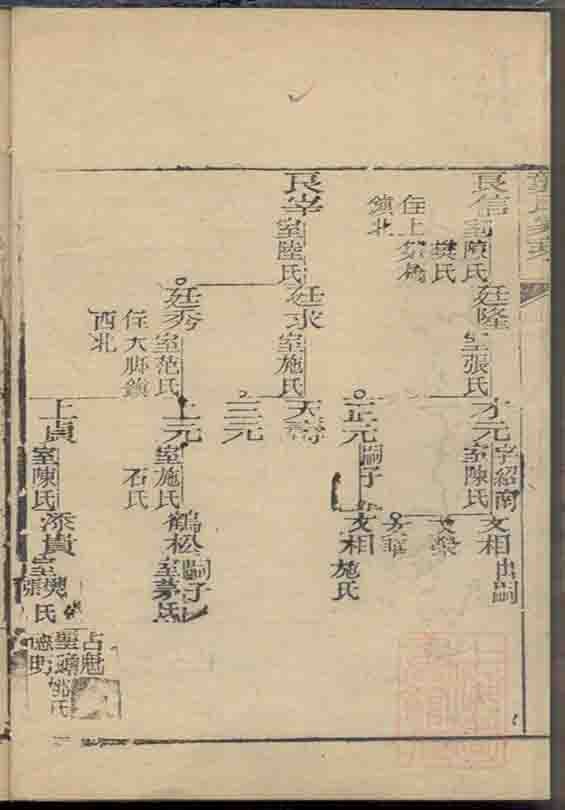 良信
室陳氏
樊氏
住上
鎮北
廷隆
室張氏
才元
字紹南
室陳氏
文相
出嗣
文榮
芳華
良宰
室陸氏
廷求
室施氏
正元
嗣子
文相
施氏
天壽
三元
廷秀
室范氏
住大腳鎮
西北
上元
室施氏
石氏
鶴松
嗣子
室茅氏
上貞
室陳氏
添貴
室樊
張氏
占魁